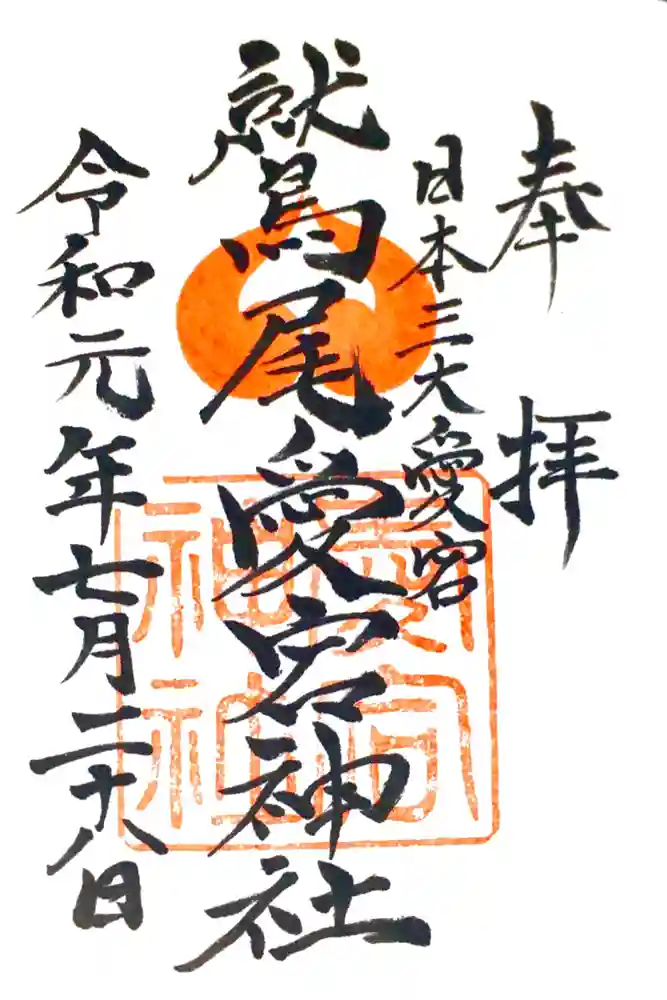 奉拝
日本三大愛宕
鷲尾愛宕神社
令和元年七月二十八日
愛宕神社